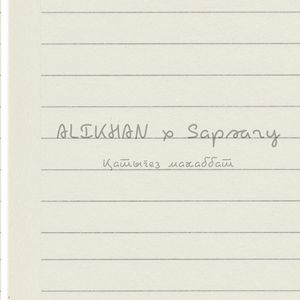 ALIKHAN x Sapsary
Қатыгез махаббат